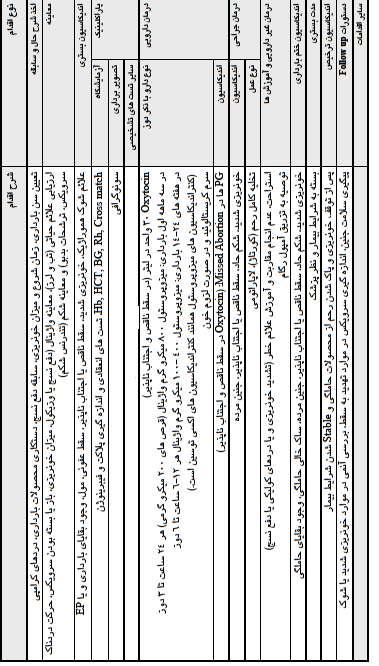 نوع اقدام
شرح اقدام
اخذ شرح حال و سابقه
تعیین سن بارداری، زمان شروع و میزان خونریزی، سابقه دفع نسج، دستکاری محصولات بارداری، دردهای کرامپی
معاینه
ارزیابی علائم حیاتی (تب و لرز)، معاینه واژینال (دفع نسج یا وزیکول، میزان خونریزی، باز یا بسته بودن سرویکس، حرکت دردناک
سرویکس، ترشحات بدبو) و معاینه شکم (تندرنس شکم)
اندیکاسیون بستری
علائم شوک هموراژیک، خونریزی شدید، سقط ناقص یا اجتناب ناپذیر، سقط عفونی، مول، وجود بقایای بارداری و یا EP
پاراکلینیک
آزمایشگاه
Hb, HCT, BG, Rh, Cross match، تست های انعقادی و اندازه گیری پلاکت و فیبرینوژن
تصویر برداری
سونوگرافی
سایر تست های تشخیصی
درمان دارویی
نوع دارو با ذکر دوز
Oxytocin ۳۰ واحد در لیتر (در سقط ناقص و اجتناب ناپذیر)
در سه ماهه اول بارداری، میزوپروستول ۸۰۰ میکرو گرم واژینال (قرص های ۲۰۰ میکرو گرمی) هر ۲۴ ساعت تا ۳ دوز
در هفته های ۲۴-۱۴ بارداری، میزوپروستول ۴۰۰-۱۰۰ میکرو گرم واژینال هر ۱۲-۶ ساعت تا ۶ دوز
(کنتراندیکاسیون های میزوپروستول همانند کنتراندیکاسیون های اکسی توسین است.)
سرم کریستالوئید و در صورت لزوم خون
اندیکاسیون
PG ها در Missed Abortion؛ Oxytocin در سقط ناقص و اجتناب ناپذیر
درمان جراحی
اندیکاسیون
خونریزی شدید، شکم حاد، سقط ناقص یا اجتناب ناپذیر، جنین مرده
نوع عمل
تخلیه کامل رحم (کورتاژ)، لاپاراتومی
درمان غیر دارویی و آموزش ها
استراحت، عدم انجام مقاربت و آموزش علائم خطر (تشدید خونریزی و یا دردهای کولیکی یا دفع نسج)
توصیه به تزریق آمپول رگام
اندیکاسیون ختم بارداری
خونریزی شدید، شکم حاد، سقط ناقص یا اجتناب ناپذیر، جنین مرده، ساک خالی حاملگی، وجود بقایای حاملگی
مدت بستری
بسته به شرایط بیمار و نظر پزشک
اندیکاسیون ترخیص
پس از توقف خونریزی و پاک شدن رحم از محصولات حاملگی و Stable شدن شرایط بیمار
دستورات Follow up
پیگیری سلامت جنین، اندازه گیری سرویکس در موارد تهدید به سقط، بررسی آنمی در موارد خونریزی شدید یا شوک
سایر اقدامات